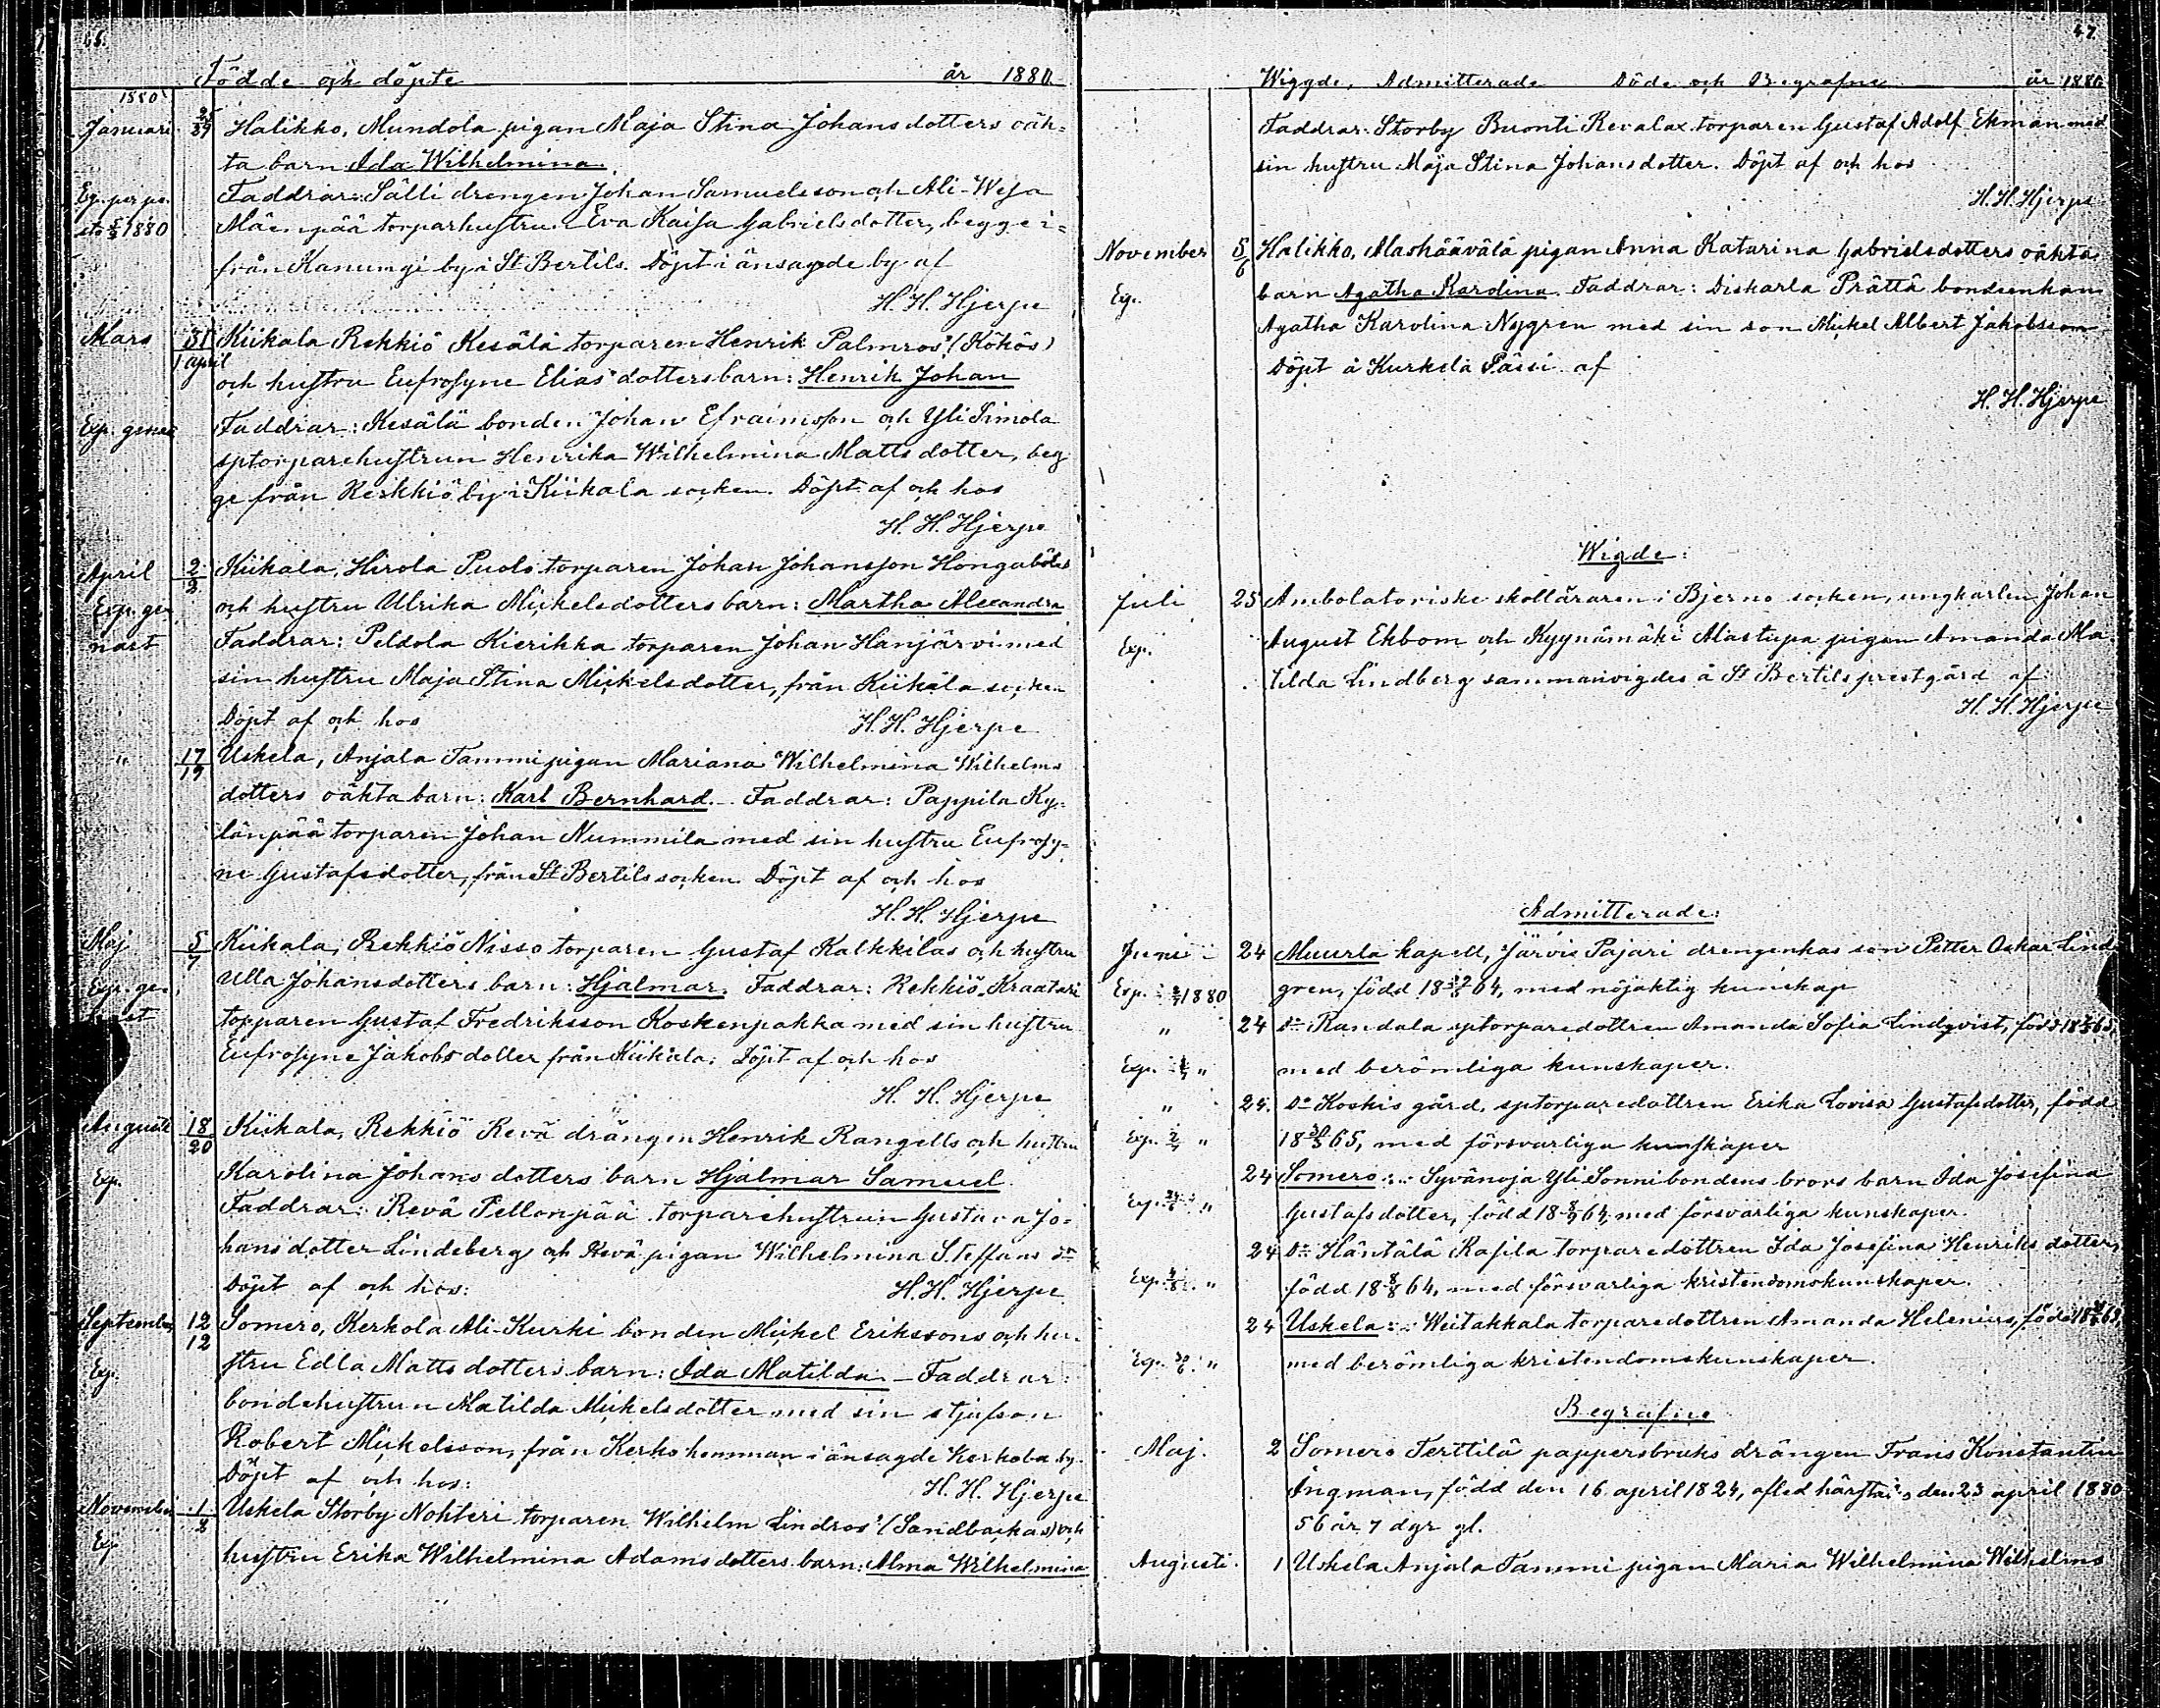 Födde och döpte år 1880
1880
Januari 25 Halikko, Mundola pigan Maja Stina Johansdotters oäk-
ta barn Ida Wilhelmina.
Faddrar: Sälli drengen Johan Samuelsson och Ali-Wesa
1880 Mäenpää torparhustrun Eva Kaisa Gabrielsdotter, begge i-
från Kanungi by i St Bertils. Döpt i änsagde by af
H. H. Hjerpe
Mars 31 Kiikala Rekkiö Kesälä torparen Henrik Palmros' (Kökös)
1 april
och hustru Eufrosyne Elias dotters barn: Henrik Johan
Exp. Faddrar: Kesälä bonden Johan Efraimsson och Yli Simola
sptorparehustrun Henrika Wilhelmina Matts dotter, beg
ge från Rekkiö by i Kiikala socken. Döpt af och hos
H. H. Hjerpe
April 2/2 Kiikala, Hirola Puolo torparen Johan Johansson
Exp. och hustru Ulrika Mickelsdotters barn: Martha Alexandra
Faddrar: Peldola Kierikka torparen Johan Hanjärvi med
sin hustru Maja Stina Mickelsdotter, från Kiikala socken
Döpt af och hos H. H. Hjerpe
" 17/19 Uskela, Anjala Tammi pigan Mariana Wilhelmina Wilhelms
dotters oäkta barn: Karl Bernhard. Faddrar: Pappila Ky-
länpää torparen Johan Nummila med sin hustru Eufrosy-
ne Gustafsdotter, från St Bertils socken. Döpt af och hos
H. H. Hjerpe
Maj 5/7 Kiikala, Rekkiö Nisso torparen Gustaf Kalkkilas och hustru
Ulla Johansdotters barn: Hjalmar. Faddrar: Rekkiö Kraatari
torparen Gustaf Fredriksson Koskenpakka med sin hustru
Eufrosyne Jakobs dotter från Kiikala. Döpt af och hos
H. H. Hjerpe
Augusti 18/20 Kiikala, Rekkiö Revä drängen Henrik Rangells och hustru
Exp. Karolina Johans dotters barn Hjalmar Samuel
Faddrar: Revä Pellonpää torparehustrun Gustava Jo-
hansdotter Lindeberg och Revä pigan Wilhelmina Steffans dr
Döpt af och hos: H. H. Hjerpe
September 12/12 Somero, Kerkola Ali-Kurki bonden Mickel Erikssons och hu-
Exp. stru Edla Matts dotters barn: Ida Matilda - Faddrar:
bondehustrun Matilda Mickelsdotter med sin stjufson
Robert Mickelsson, från Kerko hemman i änsagde Kerkola by.
Döpt af och hos: H. H. Hjerpe
November 1/2 Uskela Storby Nohteri torparen Wilhelm Lindros' (Sandbackas) och
Exp hustru Erika Wilhelmina Adamsdotters barn: Alma Wilhelmina
47
Wigde, Admitterade Döde och Begrafne år 1880
Faddrar: Storby Buonti Revalax torparen Gustaf Adolf Ekman med
sin hustru Maja Stina Johansdotter. Döpt af och hos
H. H. Hjerpe
November 5/6 Halikko, Maskäävälä pigan Anna Katarina Gabrielsdotters oäkta
Exp. barn Agatha Karolina. Faddrar: Diskarla Prättä bondeenkan
Agatha Karolina Nygren med sin son Mickel Albert Jakobsson
Döpt å Kurkela Pässi af
H. H. Hjerpe
Wigde:
Juli 25 Ambolatoriske skolläraren i Bjerno socken, ungkarlen Johan
Exp. August Ekbom och Kyynämäki Mastupa pigan Amanda Ma-
tilda Lindberg sammanvigdes å St Bertils prestgård af
H. H. Hjerpe
Admitterade:
Juni 24 Muurla kapell, Järvis Pajari drengenkas son Petter Oskar Lind
Exp. 1880 gren, född 64, med nöjaktig kunskap
" 24 Do Randala sptorparedottren Amanda Sofia Lindqvist, född
Exp. " med berömliga kunskaper.
" 24. Do Koskis gård, sptorparedottren Erika Lovisa Gustafsdotter, född
Exp. " 65, med försvarliga kunskaper
24 Somero: Syvänoja Yli Sonni bondens brors barn Ida Josefina
Exp. " Gustafsdotter, född 64, med försvarliga kunskaper.
24 Do Häntälä Rasila torparedottren Ida Josefina Henriks dotter,
Exp. " född 18 8/8 64, med försvarliga kristendomskunskaper.
24 Uskela: Weitakkala torparedottren Amanda Helenius, född
Exp. " med berömliga kristendomskunskaper.
Begrafne
Maj. 2 Somero Terttilä pappersbruks drängen Frans Konstantin
Ingman, född den 16 april 1824, afled härstädes den 23 april 1880
56 år 7 dgr gl.
Augusti. 1 Uskela Anjala Tammi pigan Maria Wilhelmina Wilhelms